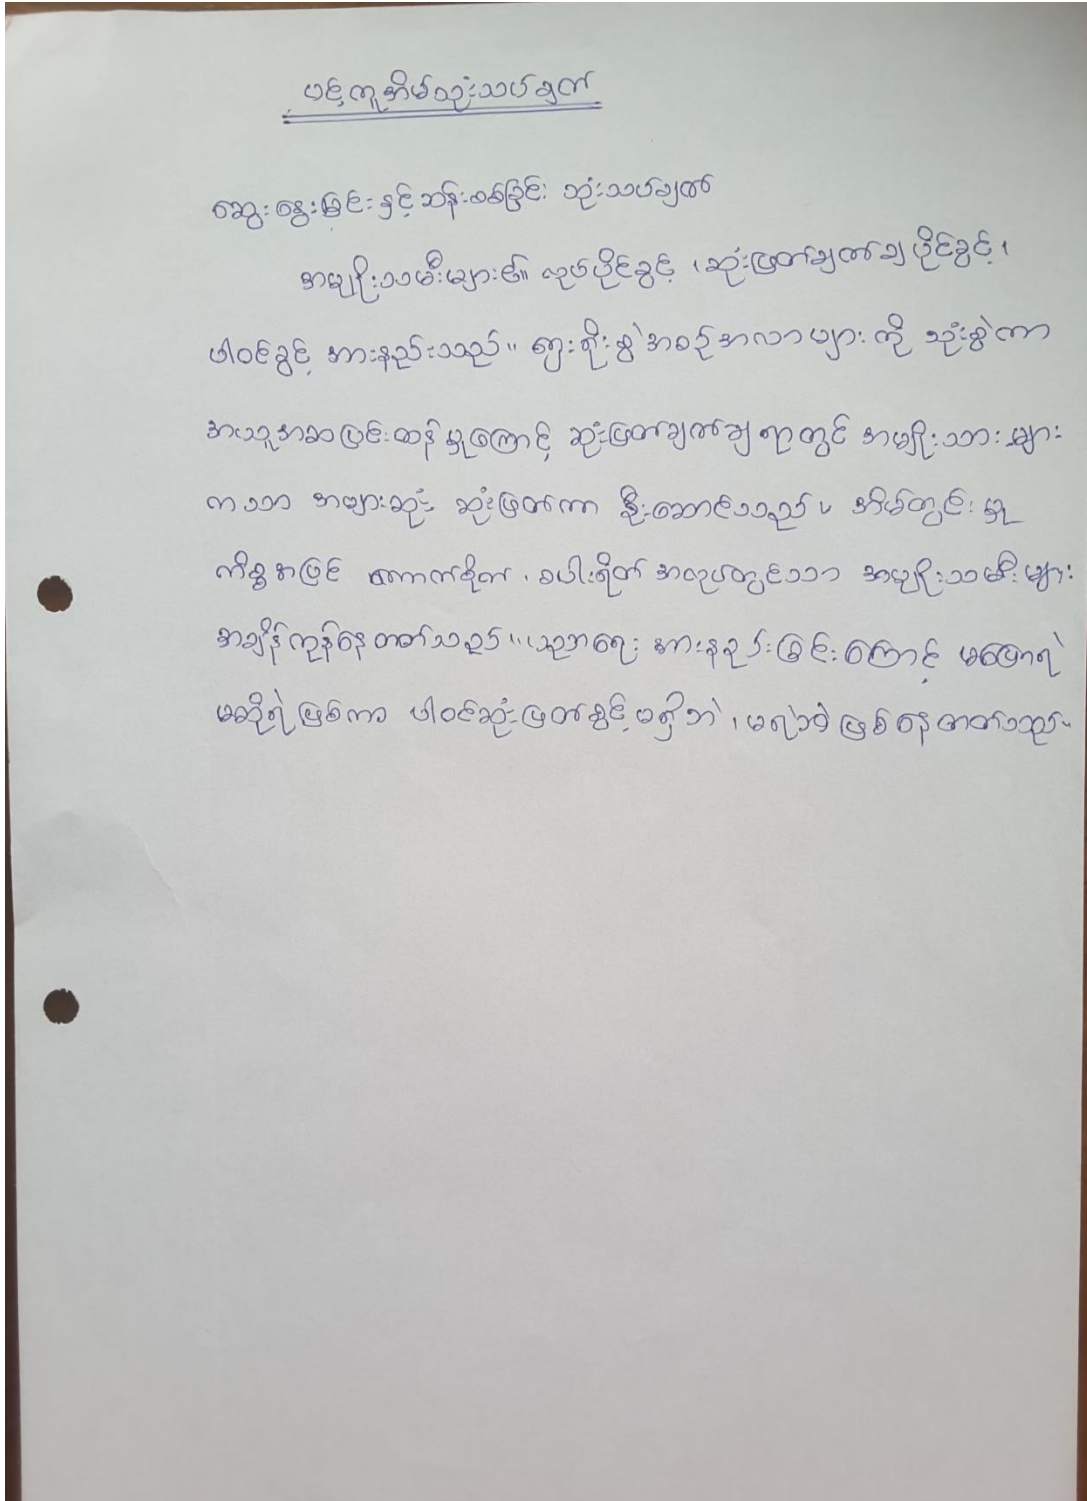 ပင့်ကူအိမ်သုံးသပ်ချက်
ဆွေးနွေးခြင်းနှင့်ဆန်းစစ်ခြင်း သုံးသပ်ချက်
အမျိုးသမီးများ၏ လုပ်ပိုင်ခွင့်၊ ဆုံးဖြတ်ချက်ချပိုင်ခွင့်၊
ပါဝင်ခွင့် အားနည်းသည်။ ရှေးရိုးစွဲအစဉ်အလာများကို သုံးစွဲကာ
အယူအဆပြင်းထန်မှုကြောင့် ဆုံးဖြတ်ချက်ချရာတွင် အမျိုးသားများ
ကသာ အများဆုံး ဆုံးဖြတ်ကာ ဦးဆောင်သည်။ အိမ်တွင်းမှု
ကိစ္စအပြင် ကောက်စိုက်၊ စပါးရိတ်အလုပ်တွင်သာ အမျိုးသမီးများ
အချိန်ကုန်နေတတ်သည်။ ပညာရေး အားနည်းခြင်းကြောင့် မပြောရဲ
မဆိုရဲဖြစ်ကာ ပါဝင်ဆုံးဖြတ်ခွင့်မရှိဘဲ၊ မရဲဘဲဖြစ်နေတတ်သည်။